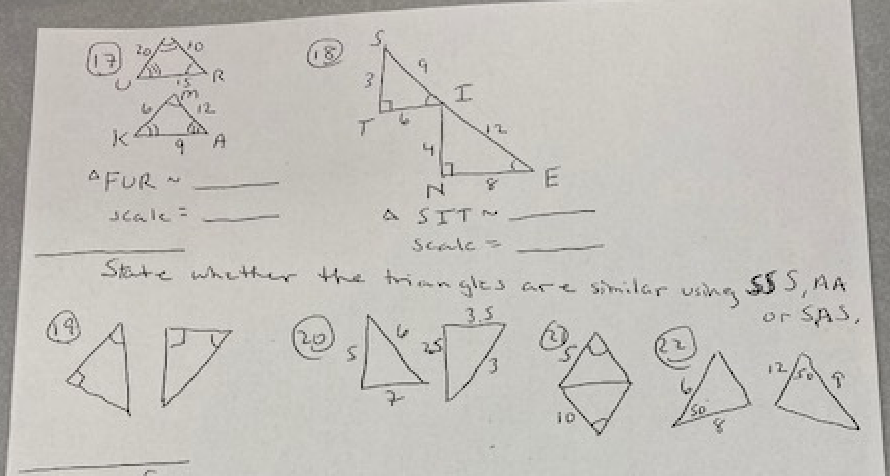 17
20 10
U 15 R
M
6 12
K 9 A
△FUR ~
scale =
18
S
3 9
I
T 6
4 12
N 8 E
△ SIT ~
scale =
State whether the triangles are similar using SSS, AA
or SAS.
19
20
5 6
7
3.5
2.5 3
5
10
22
6
50
8
12 50 9